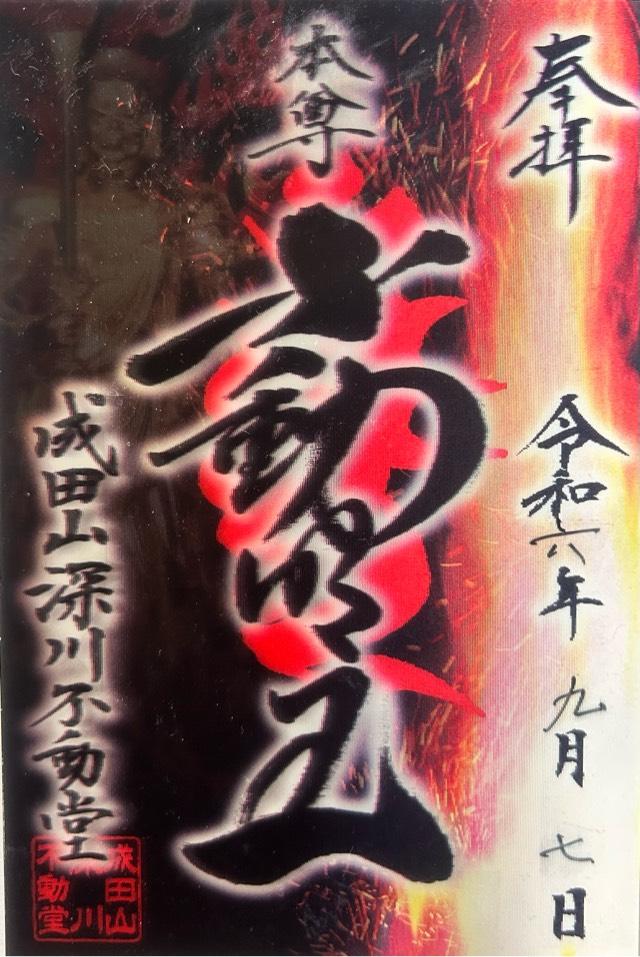 奉拝
令和六年 九月 七日
本尊
不動明王
成田山深川不動堂
成田山
深川
不動堂